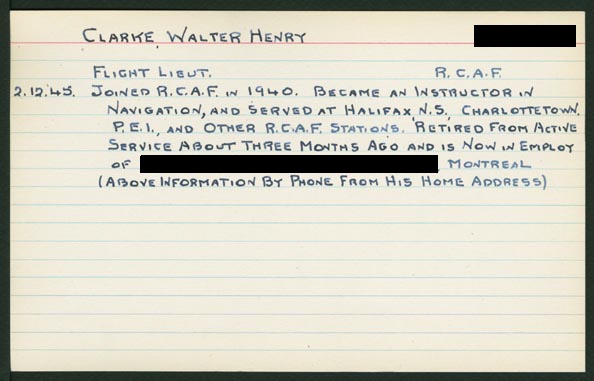 CLARKE, WALTER HENRY
FLIGHT LIEUT. R.C.A.F.
2.12.45. JOINED R.C.A.F. IN 1940. BECAME AN INSTRUCTOR IN
NAVIGATION, AND SERVED AT HALIFAX, N.S., CHARLOTTETOWN,
P.E.I., AND OTHER R.C.A.F. STATIONS. RETIRED FROM ACTIVE
SERVICE ABOUT THREE MONTHS AGO AND IS NOW IN EMPLOY
OF MONTREAL
(ABOVE INFORMATION BY PHONE FROM HIS HOME ADDRESS)